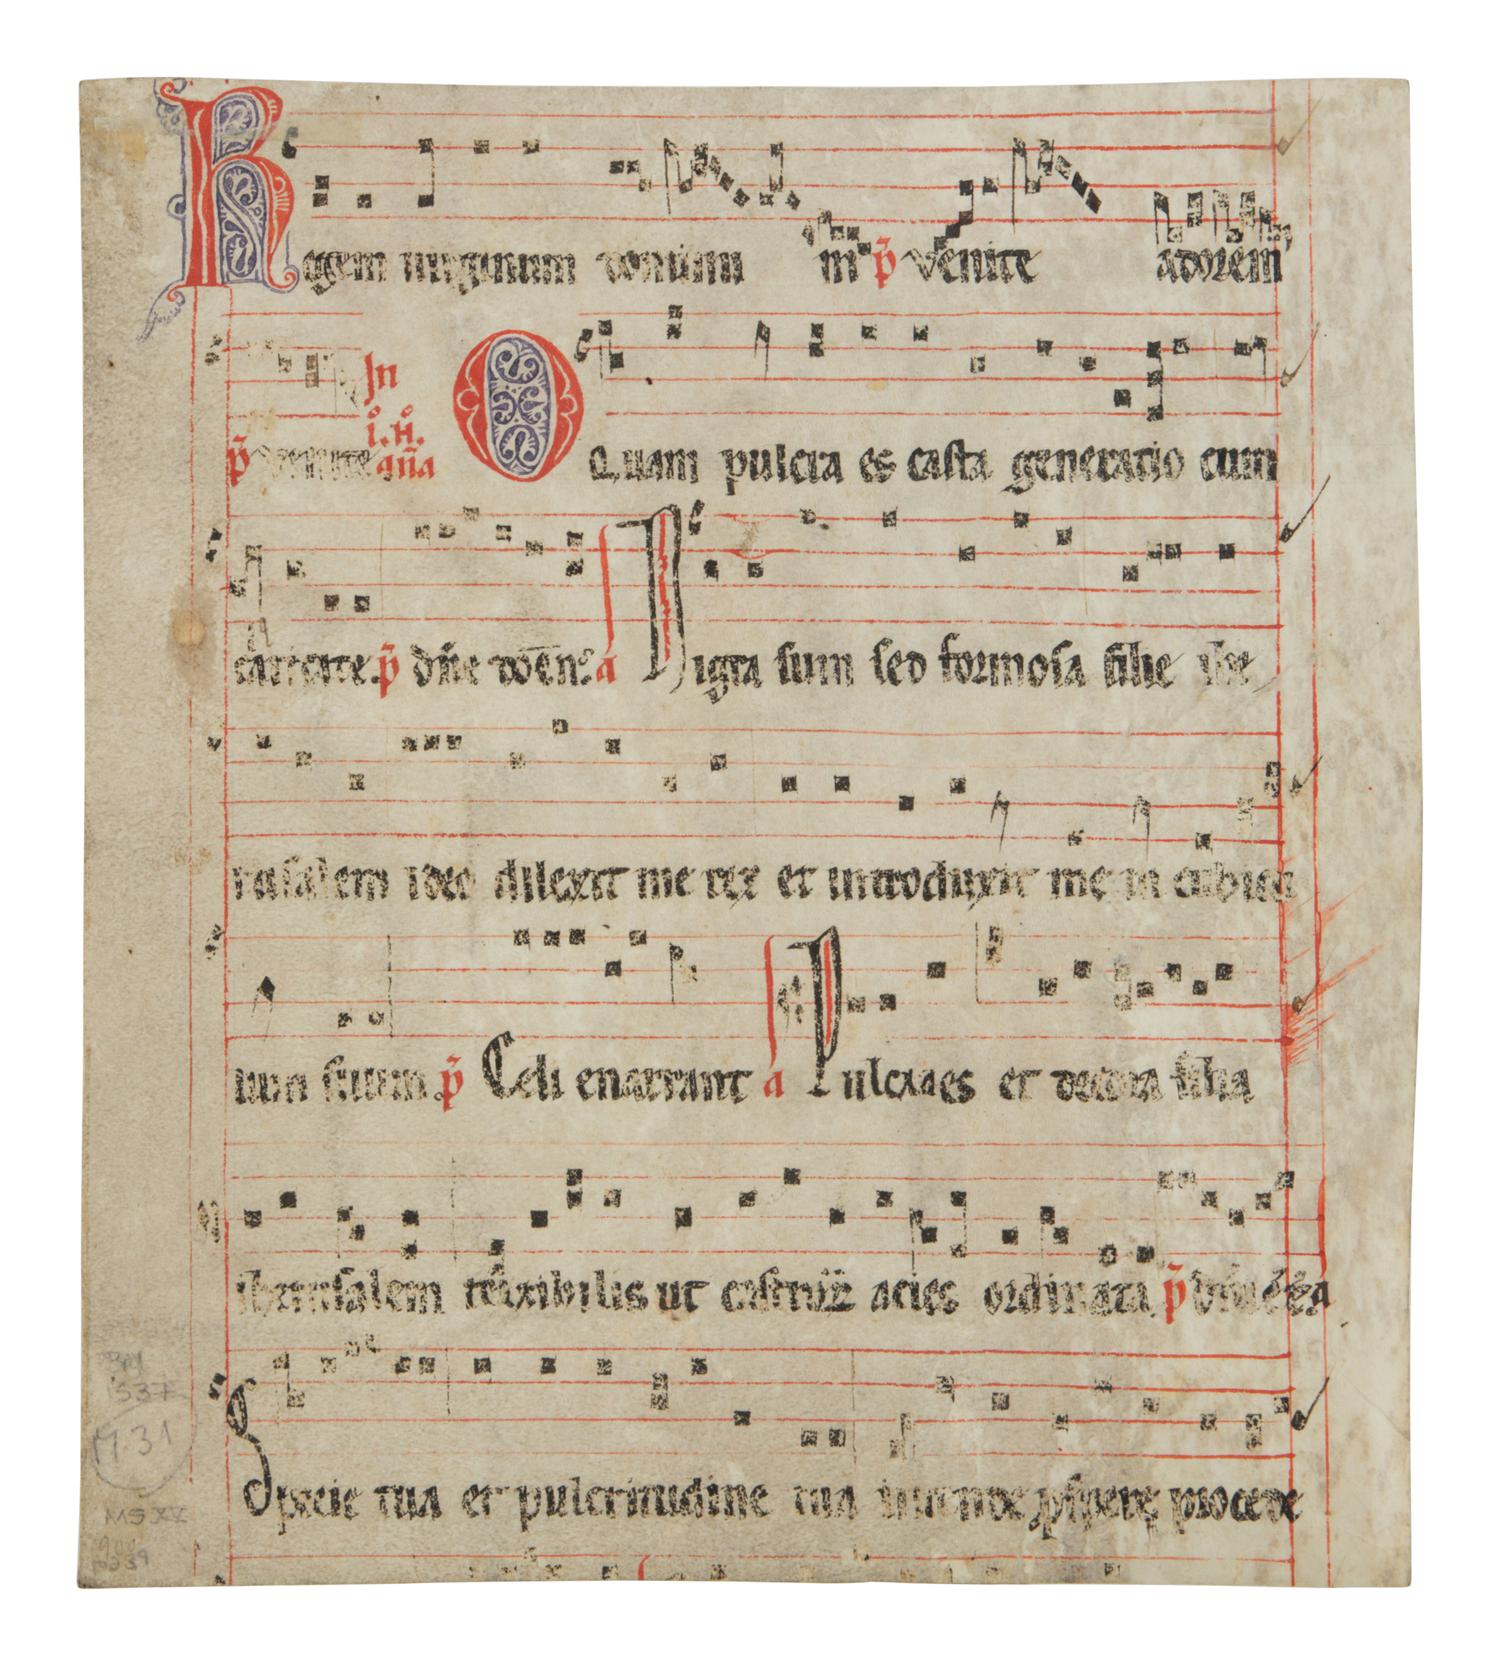 Regem uirginum dominu m p̄ venite adorem
p̄ venite In i. n̊. añа O Quam pulcra es casta generatio cum
caritate. p̄ dn̄e a Nigra sum sed formosa filie ihe
rusalem ideo dilexit me rex et introduxit me in cubicu
lum suum. p̄ Celi enarrant a Pulcra es et decora filia
iherusalem terribilis ut castroꝝ acies ordinata p̄
Specie tua et pulcritudine tua intende procede